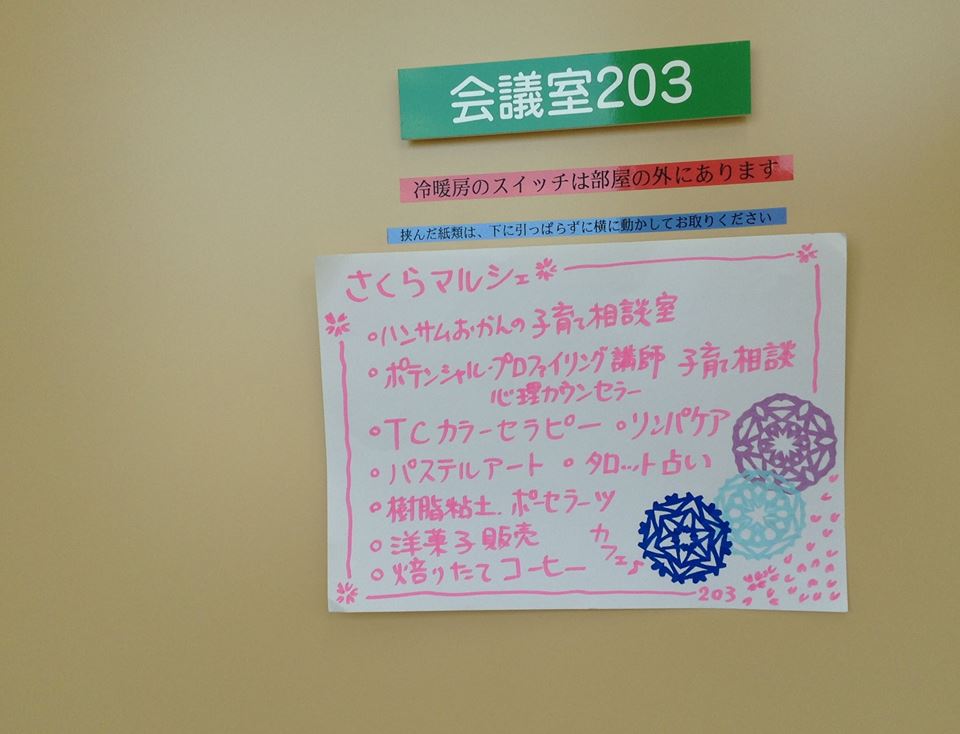 会議室203
冷暖房のスイッチは部屋の外にあります
挟んだ紙類は、下に引っぱらずに横に動かしてお取りください
さくらマルシェ
○ハンサムおかんの子育て相談室
○ポテンシャル・プロファイリング講師 子育て相談
心理カウンセラー
○TCカラーセラピー ○リンパケア
○パステルアート ○タロット占い
○樹脂粘土.ポーセラーツ
○洋菓子販売
○焙りたてコーヒー
カフェ♪
203